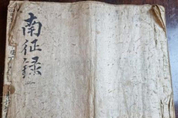 南征録一